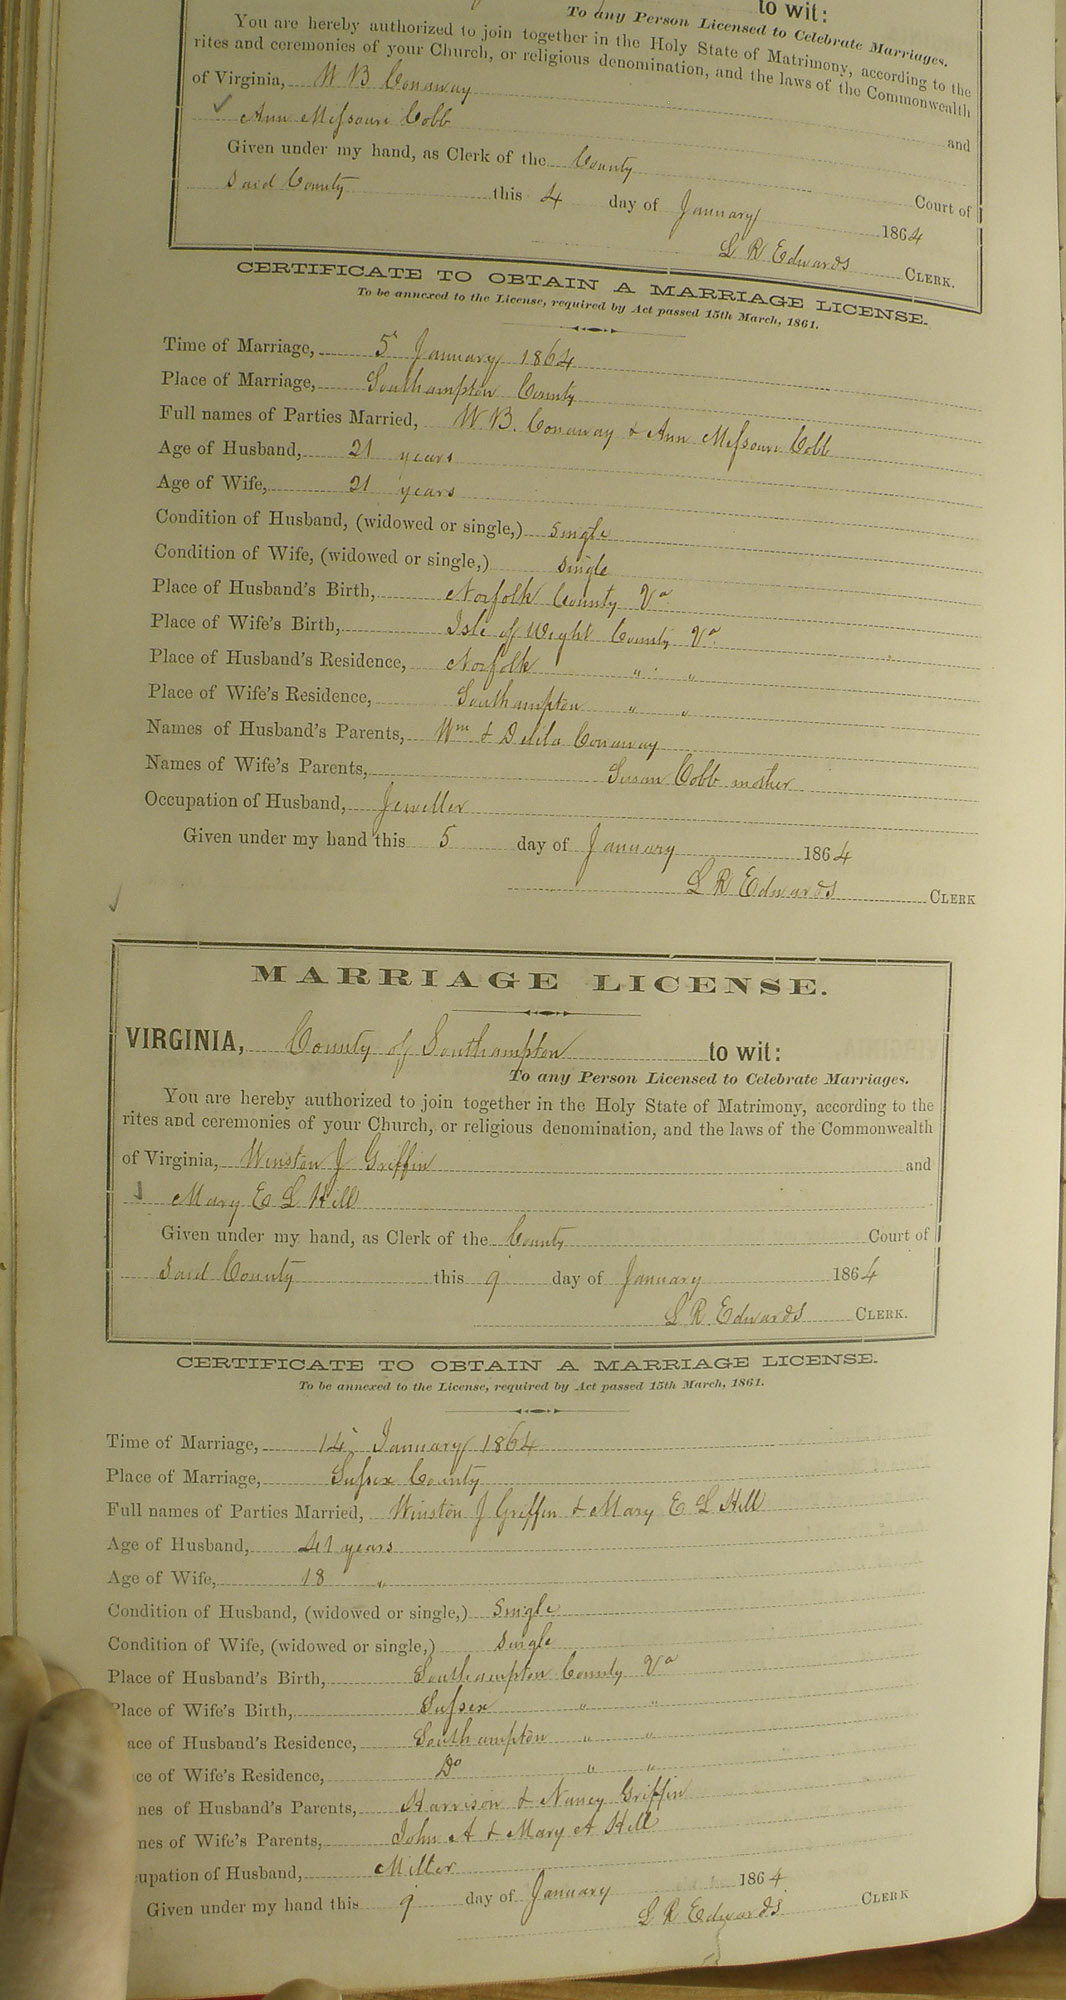 to wit:
To any Person Licensed to Celebrate Marriages.
You are hereby authorized to join together in the Holy State of Matrimony, according to the
rites and ceremonies of your Church, or religious denomination, and the laws of the Commonwealth
of Virginia, W B Conaway and
Ann Missouri Cobb
Given under my hand, as Clerk of the County Court of
Said County this 4 day of January 1864
L R Edwards CLERK.
CERTIFICATE TO OBTAIN A MARRIAGE LICENSE.
To be annexed to the License, required by Act passed 15th March, 1861.
Time of Marriage, 5 January 1864
Place of Marriage, Southampton County
Full names of Parties Married, W B. Conaway & Ann Missouri Cobb
Age of Husband, 21 years
Age of Wife, 21 years
Condition of Husband, (widowed or single,) single
Condition of Wife, (widowed or single,) single
Place of Husband's Birth, Norfolk County Va
Place of Wife's Birth, Isle of Wight County Va
Place of Husband's Residence, Norfolk " "
Place of Wife's Residence, Southampton " "
Names of Husband's Parents, Wm & Delila Conaway
Names of Wife's Parents, Susan Cobb mother
Occupation of Husband, Jeweller
Given under my hand this 5 day of January 1864
L R Edwards CLERK
MARRIAGE LICENSE.
VIRGINIA, County of Southampton to wit:
To any Person Licensed to Celebrate Marriages.
You are hereby authorized to join together in the Holy State of Matrimony, according to the
rites and ceremonies of your Church, or religious denomination, and the laws of the Commonwealth
of Virginia, Winston J Griffin and
Mary E L Hill
Given under my hand, as Clerk of the County Court of
Said County this 9 day of January 1864
L R Edwards CLERK.
CERTIFICATE TO OBTAIN A MARRIAGE LICENSE.
To be annexed to the License, required by Act passed 15th March, 1861.
Time of Marriage, 14 January 1864
Place of Marriage, Sussex County
Full names of Parties Married, Winston J Griffin & Mary E L Hill
Age of Husband, 41 years
Age of Wife, 18 "
Condition of Husband, (widowed or single,) single
Condition of Wife, (widowed or single,) single
Place of Husband's Birth, Southampton County Va
Place of Wife's Birth, Sussex " "
ace of Husband's Residence, Southampton " "
ce of Wife's Residence, Do " "
nes of Husband's Parents, Harrison & Nancy Griffin
nes of Wife's Parents, John A & Mary A Hill
cupation of Husband, Miller
Given under my hand this 9 day of January 1864
L R Edwards CLERK